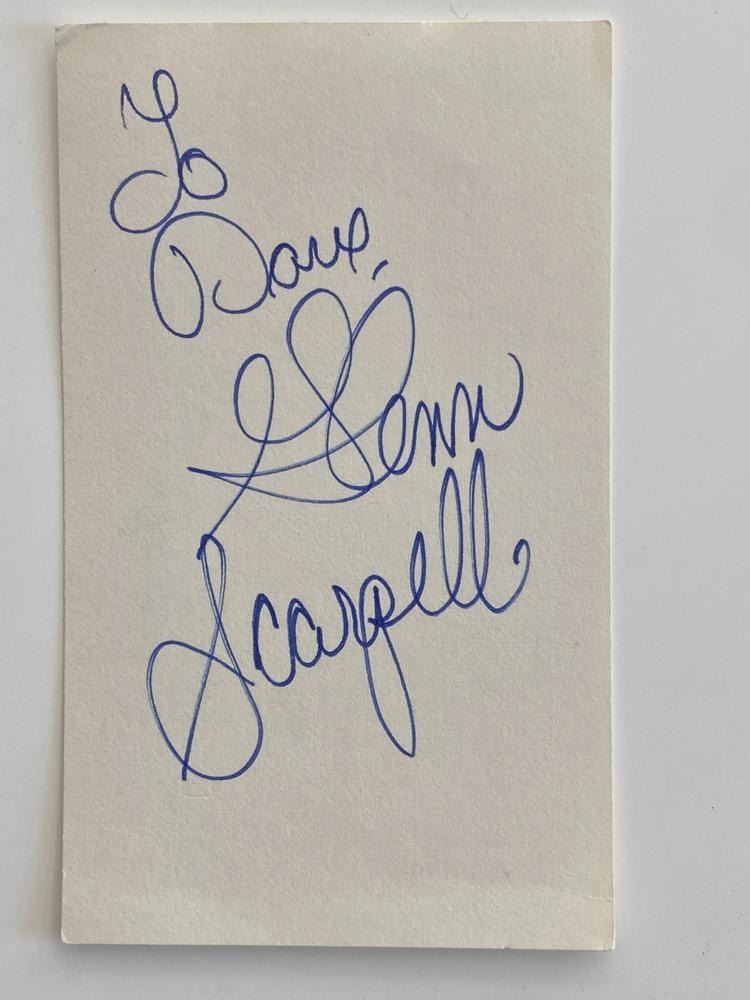 To
Dave,
Glenn
Scarpelli